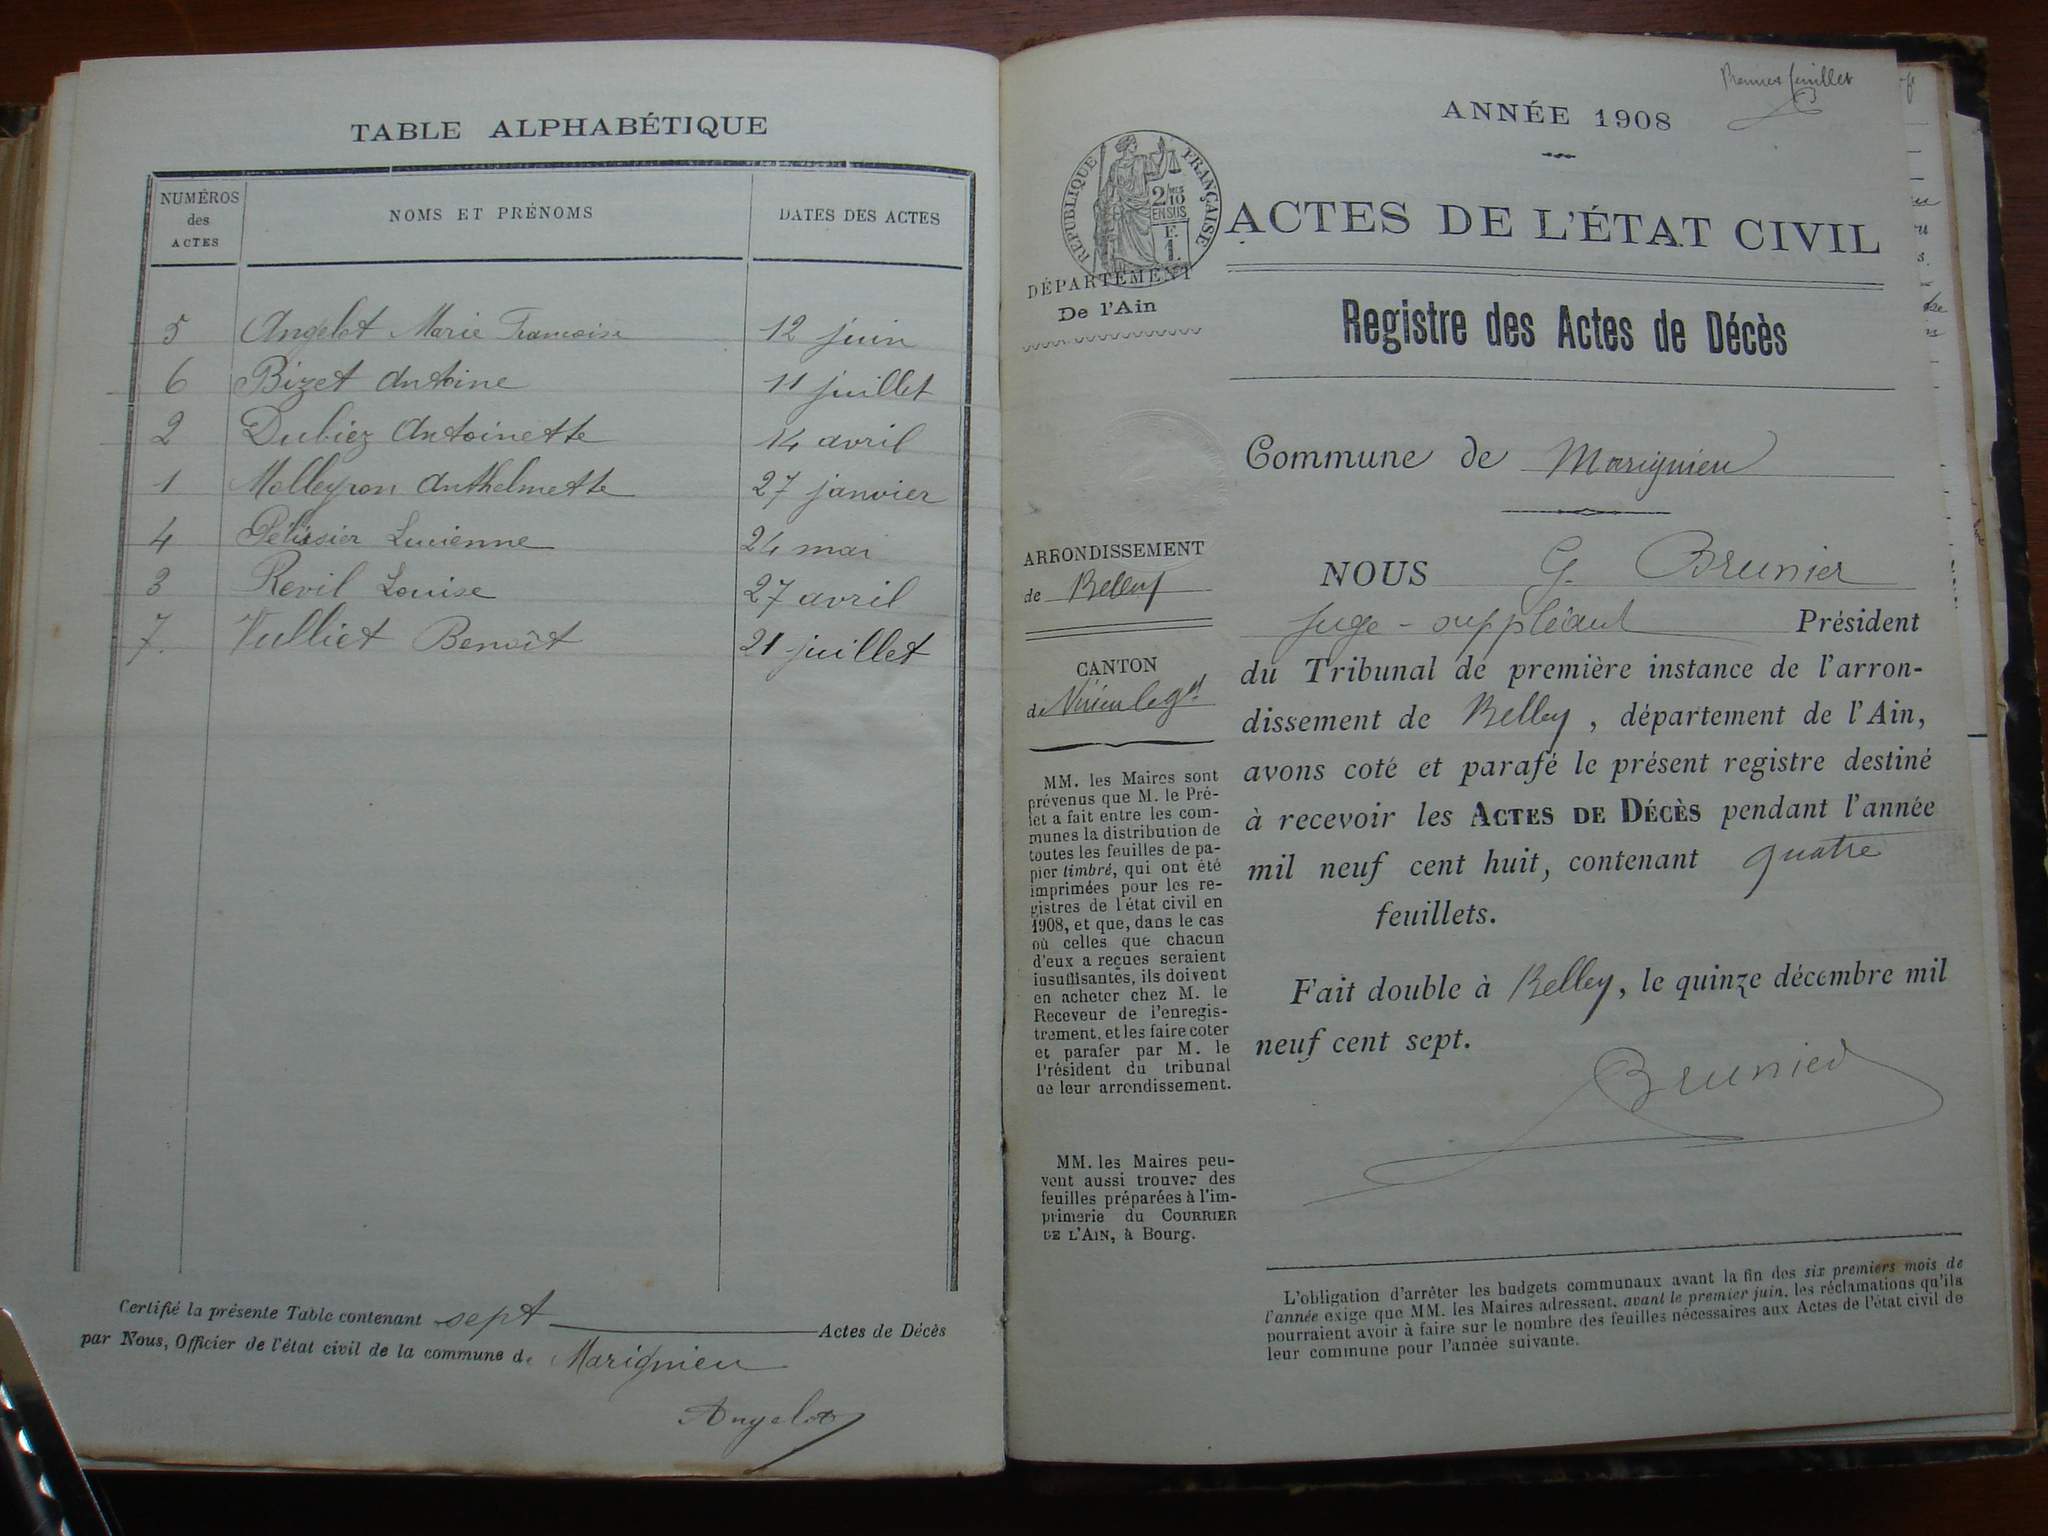 TABLE ALPHABÉTIQUE
NUMÉROS des ACTES NOMS ET PRÉNOMS DATES DES ACTES
5 Angelot Marie Francoise 12 juin
6 Bizet Antoine 11 juillet
2 Dubiez Antoinette 14 avril
1 Molleyron Anthelmette 27 janvier
4 Pélissier Lucienne 24 mai
3 Revil Louise 27 avril
7. Vulliet Benoît 21 juillet
Certifié la présente Table contenant sept Actes de Décès
par Nous, Officier de l'état civil de la commune de Marignieu
Angelot
Premier feuillet
ANNÉE 1908
RÉPUBLIQUE FRANÇAISE
2/10
EN SUS
F.
1.
ACTES DE L'ÉTAT CIVIL
DÉPARTEMENT
De l'Ain
Registre des Actes de Décès
Commune de Marignieu
ARRONDISSEMENT
de Belley
CANTON
de Virieu le gd
MM. les Maires sont
prévenus que M. le Pré-
fet a fait entre les com-
munes la distribution de
toutes les feuilles de pa-
pier timbré, qui ont été
imprimées pour les re-
gistres de l'état civil en
1908, et que, dans le cas
où celles que chacun
d'eux a reçues seraient
insuffisantes, ils doivent
en acheter chez M. le
Receveur de l'enregis-
trement, et les faire coter
et parafer par M. le
Président du tribunal
de leur arrondissement.
MM. les Maires peu-
vent aussi trouver des
feuilles préparées à l'im-
primerie du COURRIER
DE L'AIN, à Bourg.
NOUS G. Brunier
juge-suppléant Président
du Tribunal de première instance de l'arron-
dissement de Belley, département de l'Ain,
avons coté et parafé le présent registre destiné
à recevoir les ACTES DE DÉCÈS pendant l'année
mil neuf cent huit, contenant quatre
feuillets.
Fait double à Belley, le quinze décembre mil
neuf cent sept.
Brunier
L'obligation d'arrêter les budgets communaux avant la fin des six premiers mois de
l'année exige que MM. les Maires adressent, avant le premier juin, les réclamations qu'ils
pourraient avoir à faire sur le nombre des feuilles nécessaires aux Actes de l'état civil de
leur commune pour l'année suivante.